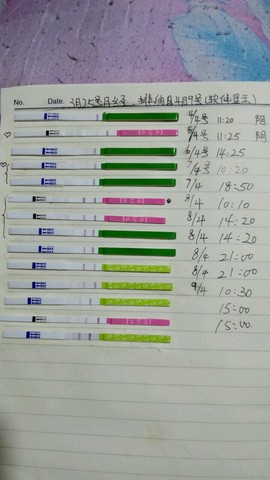 No. Date. 3月25号月经,排卵日4月9号(软件显示)
4/4号 11:20 阴
5/4号 11:25 阴
6/4号 14:25
7/4号 10:20
7/4 18:50
8/4 10:10
8/4 14:20
8/4 14:20
8/4 21:00
8/4 21:00
9/4 10:30
15:00
15:00